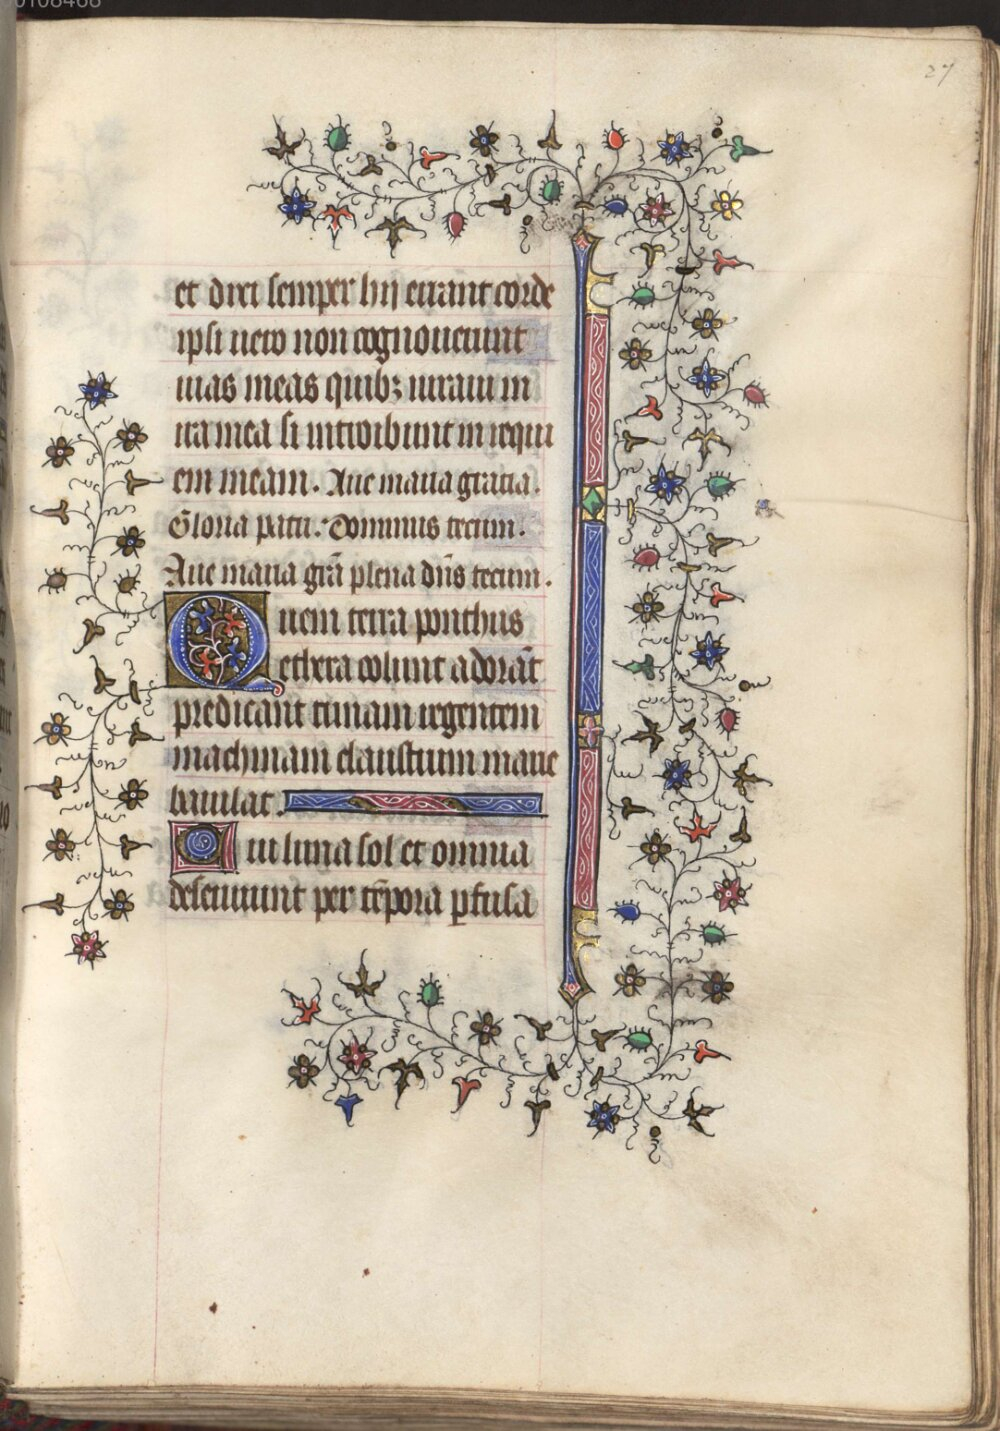 27
et dixi semper hij errant corde
ipsi uero non cognouerunt
uias meas quibꝫ iuraui in
ira mea si introibunt in requi
em meam. Aue maria gratia.
Gloria patri. Dominus tecum.
Aue maria grā plena dn̄s tecum.
Quem terra ponthus
ethera colunt adorāt
predicant trinam regentem
machinam claustrum marie
baiulat.
Cui luna sol et omnia
deseruiunt per tēpora ꝑfusa